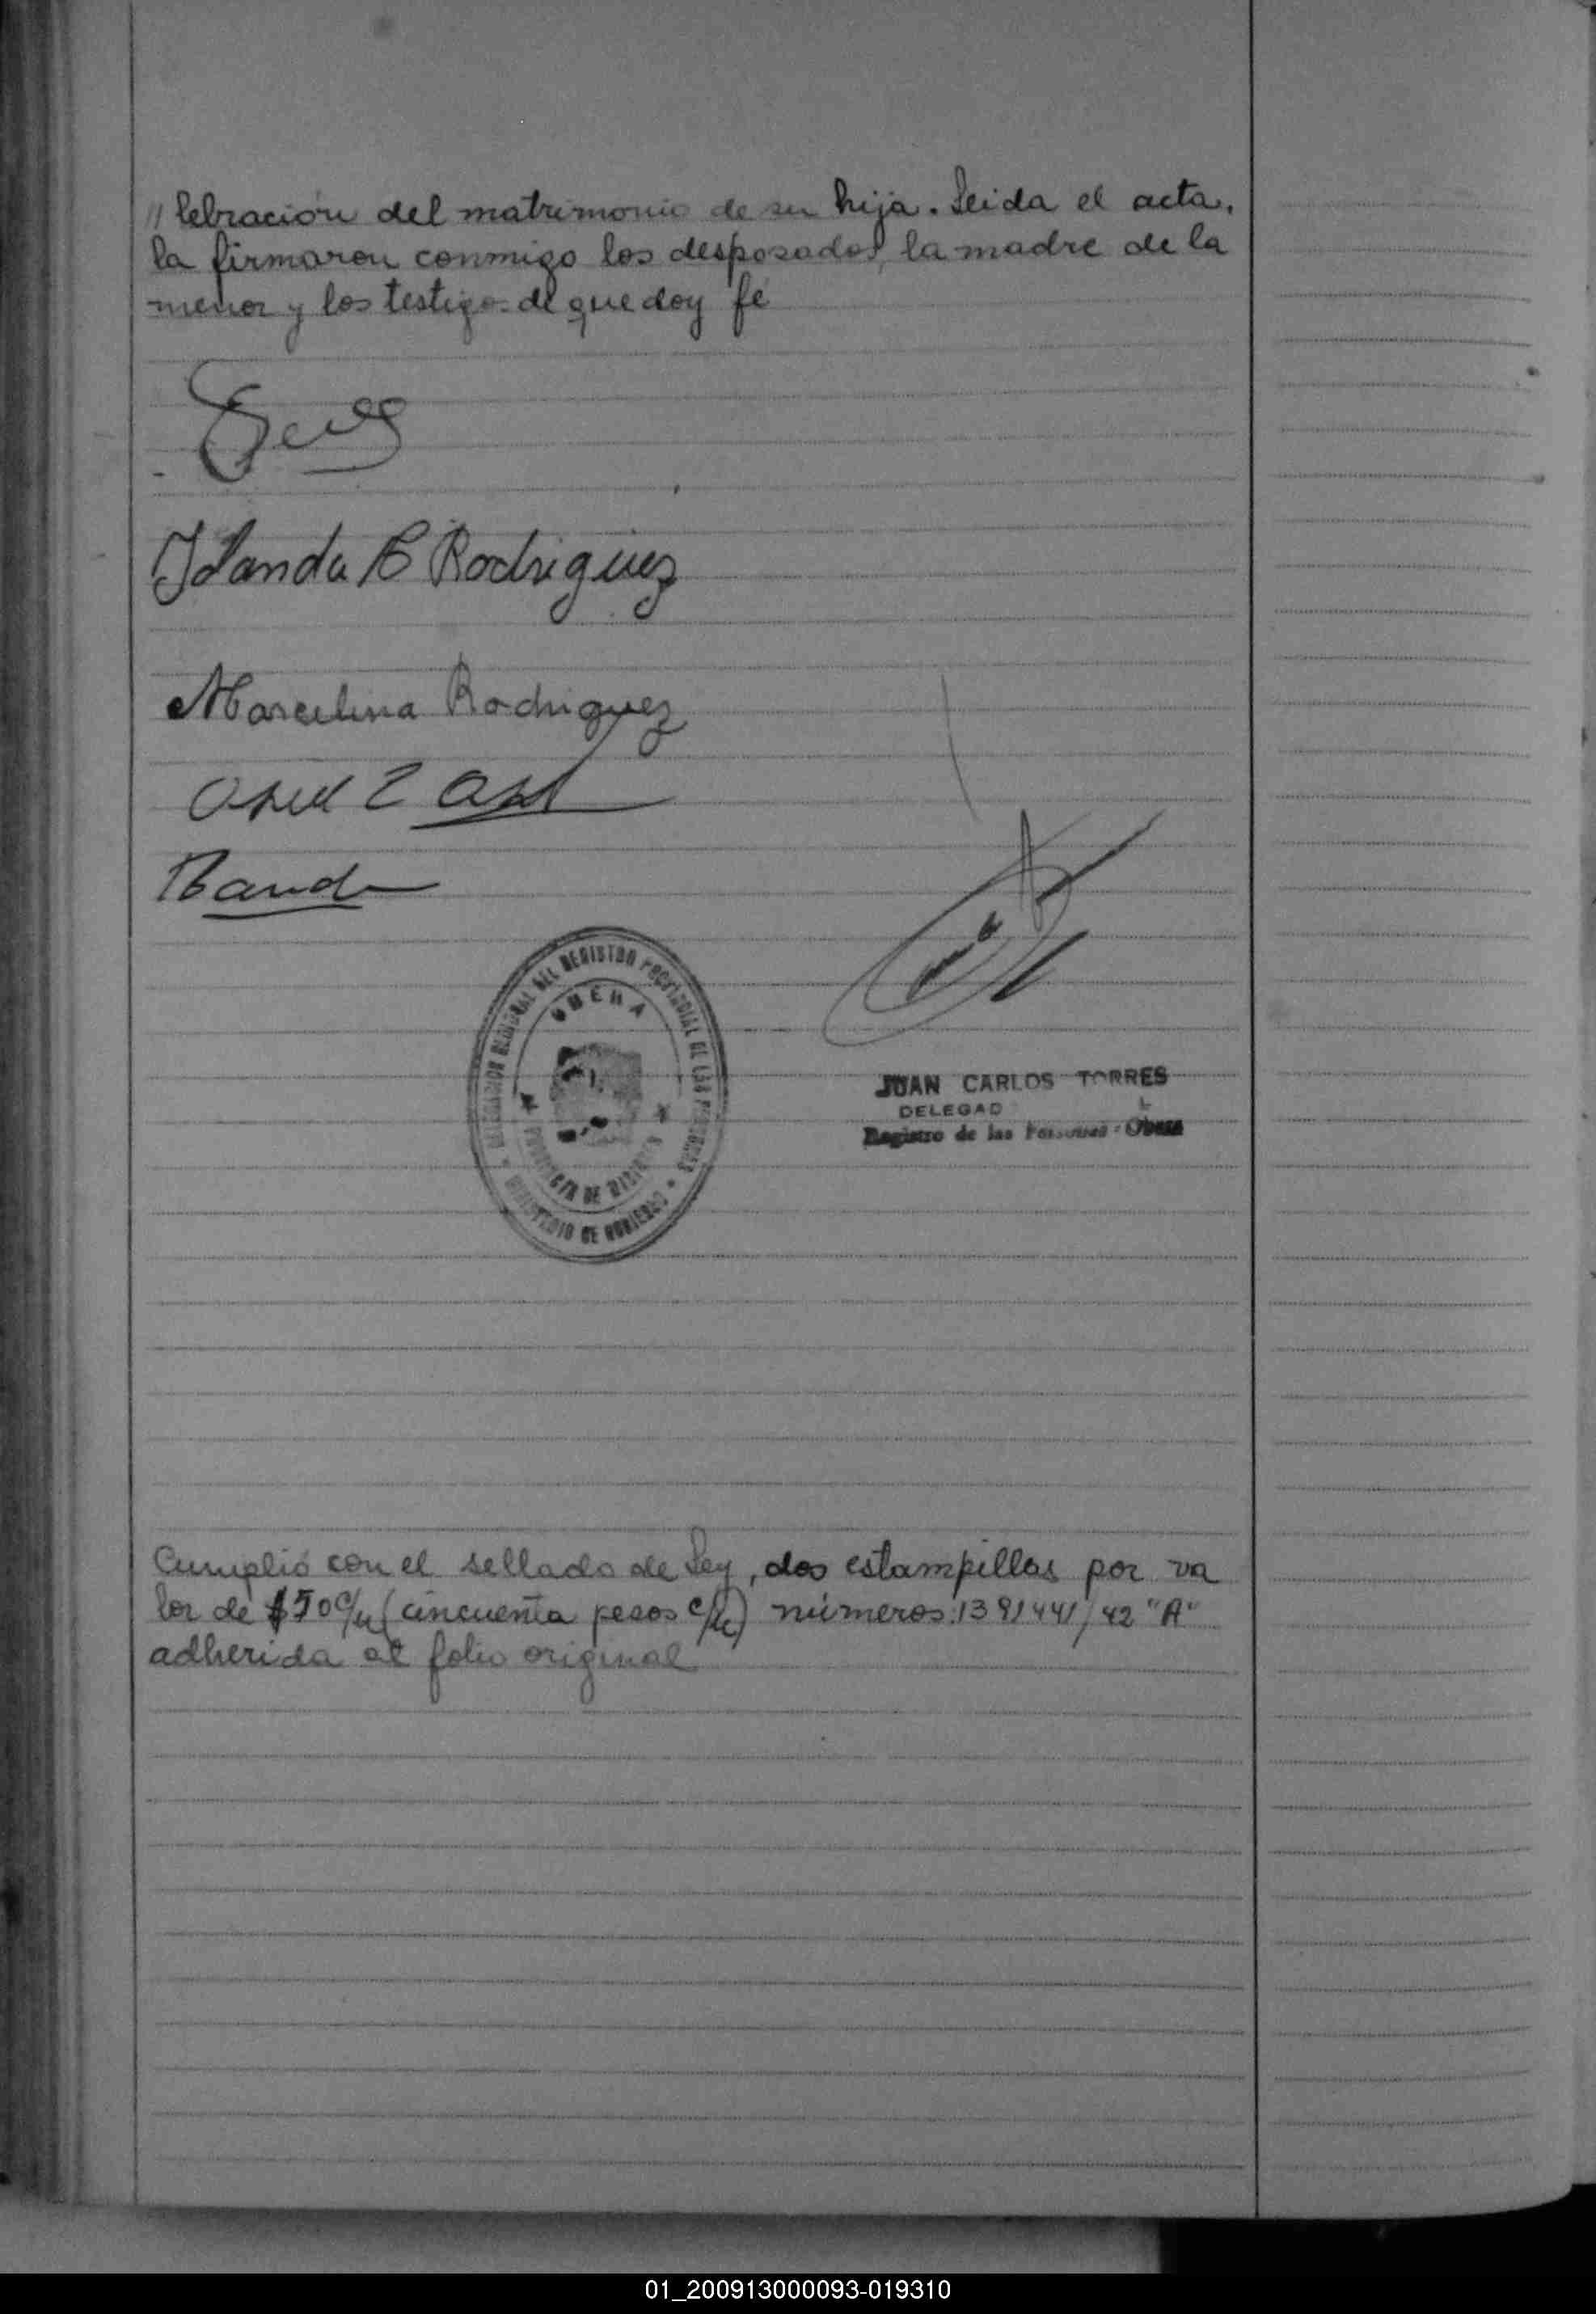 // lebracion del matrimonio de su hija. Leida el acta,
la firmaron conmigo los desposados, la madre de la
menor y los testigos de que doy fé
Iolanda B Rodriguez
Marcelina Rodriguez
DELEGACION REGIONAL DEL REGISTRO PROVINCIAL DE LAS PERSONAS
OBERA
PROVINCIA DE MISIONES
MINISTERIO DE GOBIERNO
JUAN CARLOS TORRES
DELEGAD
Registro de las Personas - Obera
Cumplió con el sellado de Ley, dos estampillas por va
lor de $50 c/u (cincuenta pesos c/u) números: 1391441/42 "A"
adherida al folio original
01_200913000093-019310